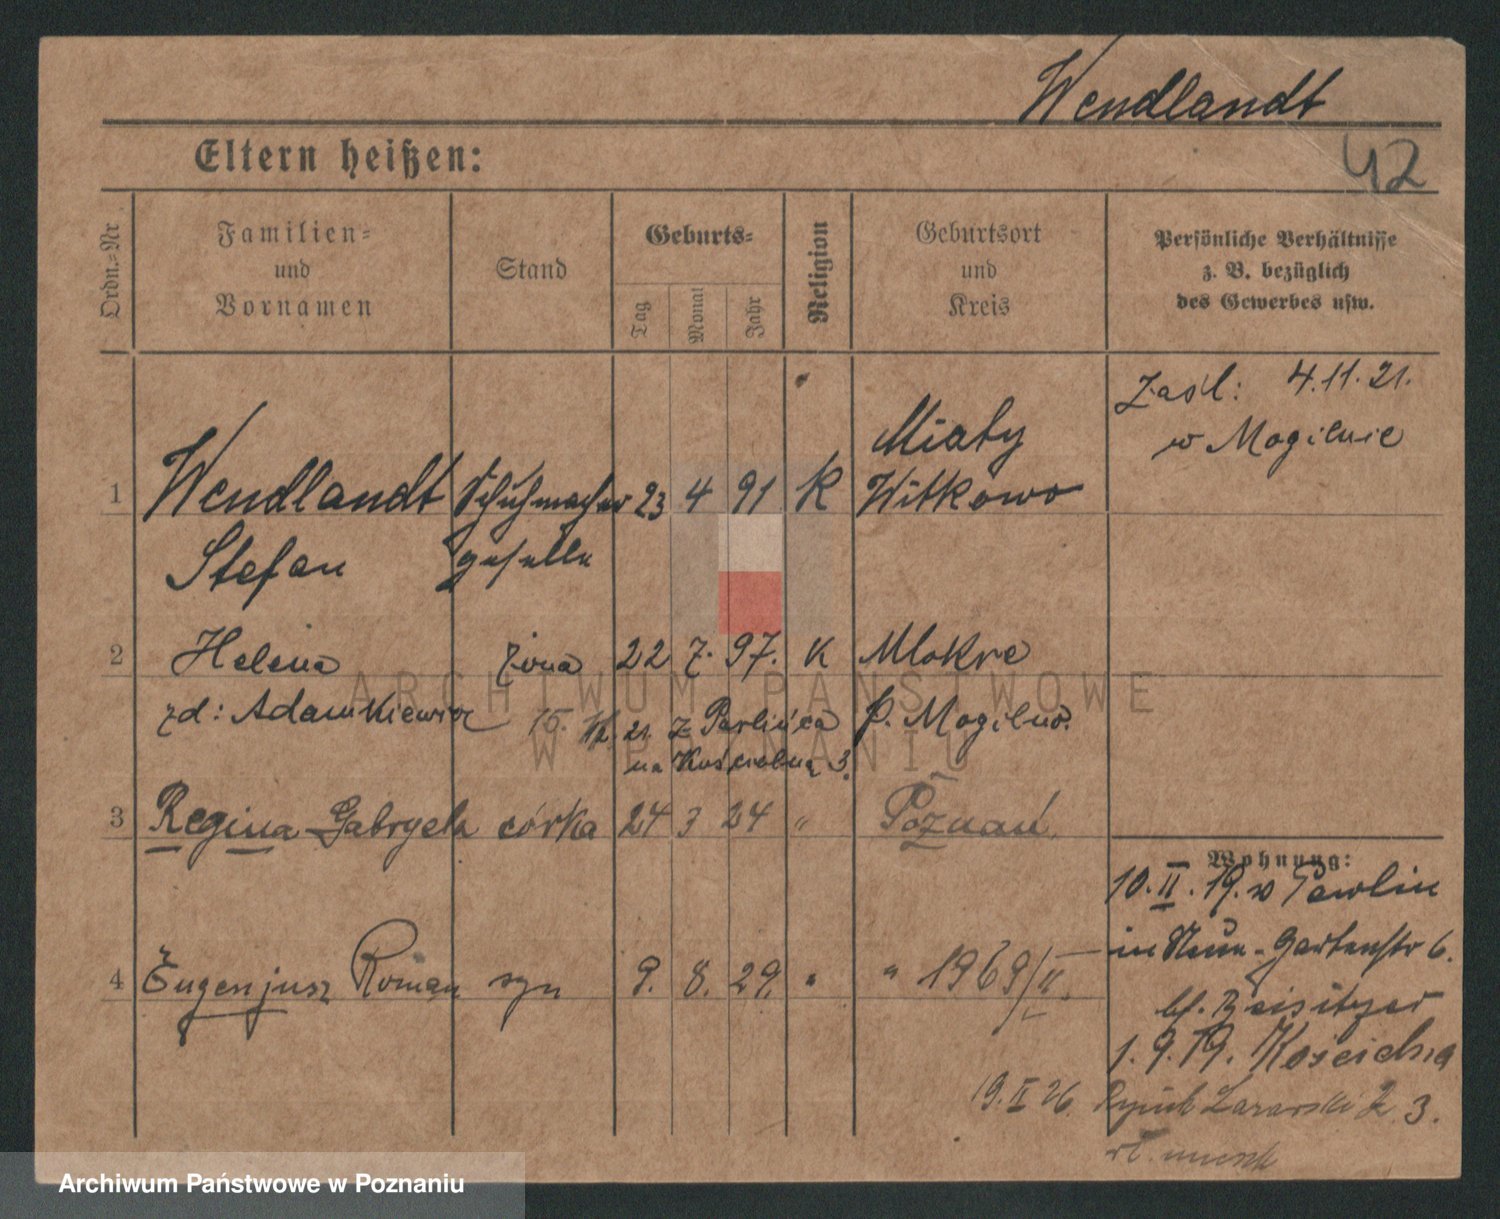 Wendlandt
Eltern heißen:
42
Ordn.=Nr
Familien=
und
Vornamen
Stand
Geburts=
Tag
Monat
Jahr
Religion
Geburtsort
und
Kreis
Persönliche Verhältnisse
z. B. bezüglich
des Gewerbes usw.
Zaśl: 4.11.21.
w Mogilnie
1 Wendlandt Schuhmacher 23 4 91 K Miaty
Witkowo
Stefan geselle
2 Helena żona 22 7. 97. K Mokre
zd: Adamkiewicz P. Mogilno.
15. 21. z Parlińca
na Kościelną 3.
3 Regina Gabryela córka 24 3 24 " Poznań
Wohnung:
10.II.19. v Pawlin
in Neun-Gartenstr 6.
bf. Beisitzer
4 Eugenjusz Roman syn 9. 8. 29. " " 1969/II.
1.9.19. Kościelna
19.II 26. Rynek Łazarski 3.
ARCHIWUM PAŃSTWOWE
W POZNANIU
Archiwum Państwowe w Poznaniu